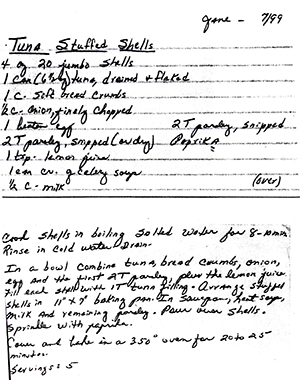 Jane - 7/99
Tuna Stuffed Shells
4 oz 20 jumbo shells
1 can (6½ oz) tuna, drained + flaked
1 c. soft bread crumbs
½ c. onion, finely chopped
1 beaten egg 2T parsley, snipped
2T parsley, snipped (or dry) Paprika
1 tsp. lemon juice
1 can cr. of celery soup
½ c - milk (over)
Cook shells in boiling salted water for 8-10 min.
Rinse in cold water. Drain.
In a bowl combine tuna, bread crumbs, onion,
egg and the first 2T parsley, plus the lemon juice.
Fill each shell with 1T tuna filling. Arrange stuffed
shells in 11"x7" baking pan. In saucepan, heat soup,
milk and remaining parsley. Pour over shells.
Sprinkle with paprika.
Cover and bake in a 350° oven for 20 to 25
minutes.
Servings: 5